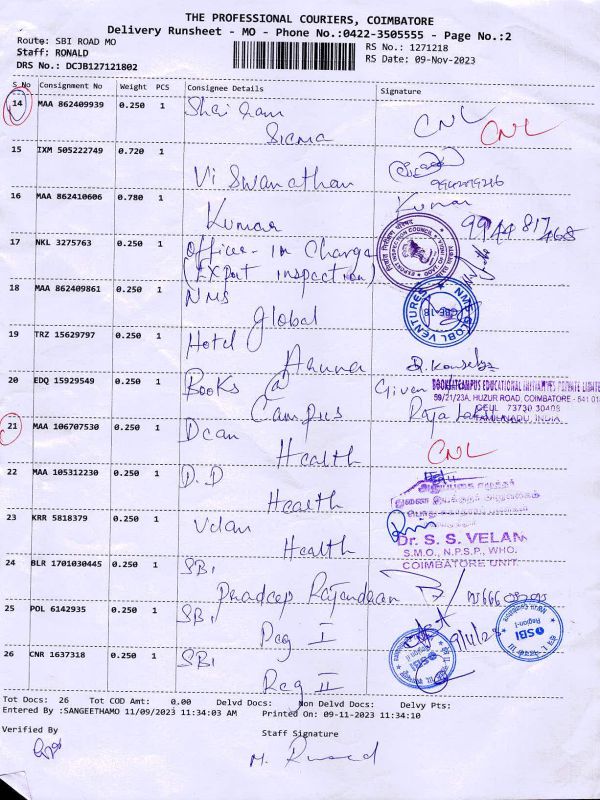 THE PROFESSIONAL COURIERS, COIMBATORE
Delivery Runsheet - MO - Phone No.:0422-3505555 - Page No.:2
Route: SBI ROAD MO
RS No.: 1271218
Staff: RONALD
RS Date: 09-Nov-2023
DRS No.: DCJB127121802
S.No Consignment No Weight PCS Consignee Details Signature
14 MAA 862409939 0.250 1
Sigma CNL CNL
15 IXM 505222749 0.720 1
Viswanathan
16 MAA 862410606 0.780 1 Kumar
Kumar 9944817468
17 NKL 3275763 0.250 1 Officer-in Charge
(Export inspection)
18 MAA 862409861 0.250 1 NMS
Global NMS GLOBL VENTURES
CBE-18
19 TRZ 15629797 0.250 1 Hotel
20 EDQ 15929549 0.250 1 Books @ Given
Campus
59/21/23A, HUZUR ROAD, COIMBATORE - 641 018
CELL 73730 30408
TAMILNADU, INDIA
21 MAA 106707530 0.250 1 Dean
Health CNL
22 MAA 105312230 0.250 1 D.D
Health
23 KRR 5818379 0.250 1 Velan
Health
Dr. S. S. VELAN
S.M.O., N.P.S.P., WHO.
COIMBATORE UNIT
24 BLR 1701030445 0.250 1 SBI
Pradeep
25 POL 6142935 0.250 1 SBI
Reg I
SBI
Region-I
26 CNR 1637318 0.250 1 SBI
Reg II
SBI
Tot Docs: 26 Tot COD Amt: 0.00 Delvd Docs: Non Delvd Docs: Delvy Pts:
Entered By :SANGEETHAMO 11/09/2023 11:34:03 AM Printed On: 09-11-2023 11:34:10
Verified By Staff Signature